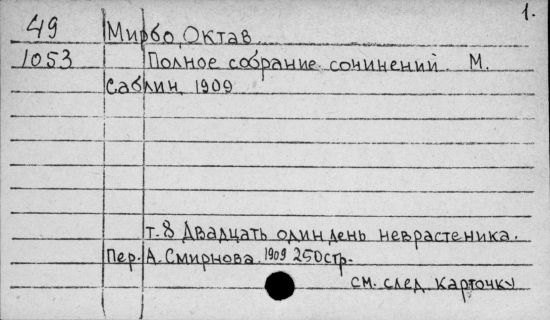 1.
49 Мирбо, Октав
1053 Полное собрание сочинений М.
Саблин, 1909
т.8 Двадцать один день неврастеника.
Пер. А. Смирнова. 1909 250стр.
см. след. карточку